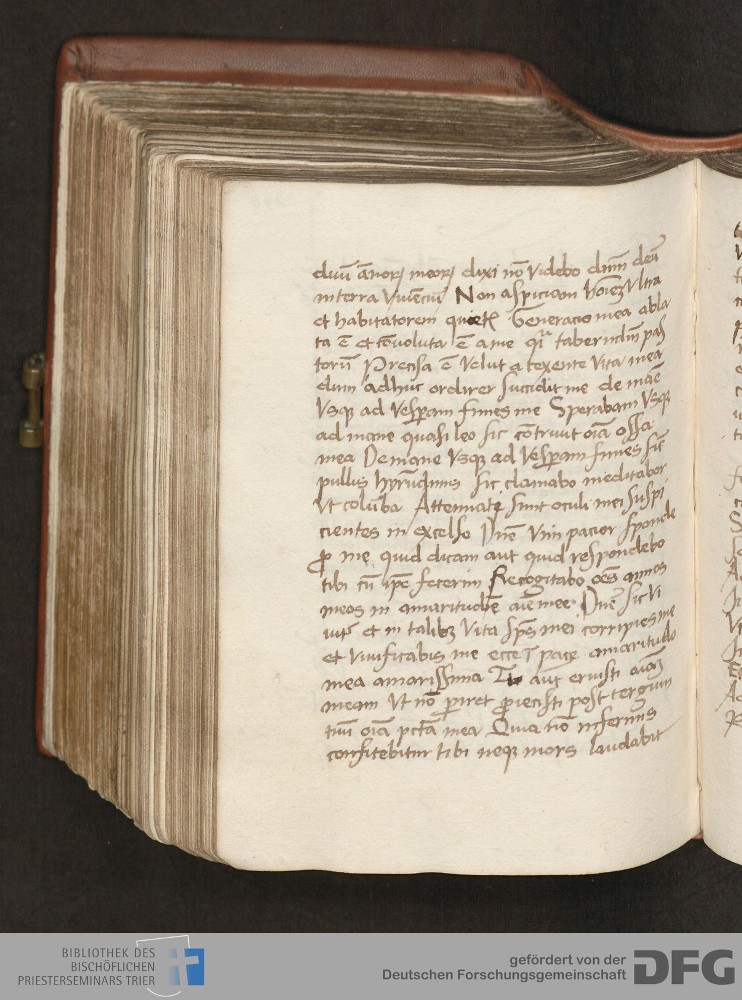 duū ānorꝝ meorꝝ dixi nō videbo dnm̄ deū
in terra viventiū Non aspiciam hōiez vltra
et habitatorem quietꝭ Generatio mea abla
ta ē et cōvoluta ē a me qͥ tabernaclm̄ pas
torū Precisa ē velut a texente vita mea
dum adhuc ordirer succidit me de māe
vsqꝫ ad vesꝑam finies me Sperabam vsqꝫ
ad mane quasi leo sic cōtrivit oīa ossa
mea De mane vsqꝫ ad vesꝑam finies sic̄
pullus hyrūdinis sic clamabo meditabor
vt colūba Attenuati sunt oculi mei suspi
cientes in excelso Dn̄e vim patior sponde
ꝓ me quid dicam aut quid respondebo
tibi cū ip̄e fecerim Recogitabo oēs annos
meos in amaritudīe aīe mee Dn̄e sic vi
vitͬ et in talibꝫ vita sp̄s mei corripies me
et vivificabis me ecce ī pace amaritudo
mea amarissima Tu aut eruisti aīaꝫ
meam vt nō ꝑiret ꝓiecisti post tergum
tuū oīa pctā mea Quia nō infernus
confitebitur tibi neqꝫ mors laudabit
BIBLIOTHEK DES
BISCHÖFLICHEN
PRIESTERSEMINARS TRIER
gefördert von der
Deutschen Forschungsgemeinschaft
DFG